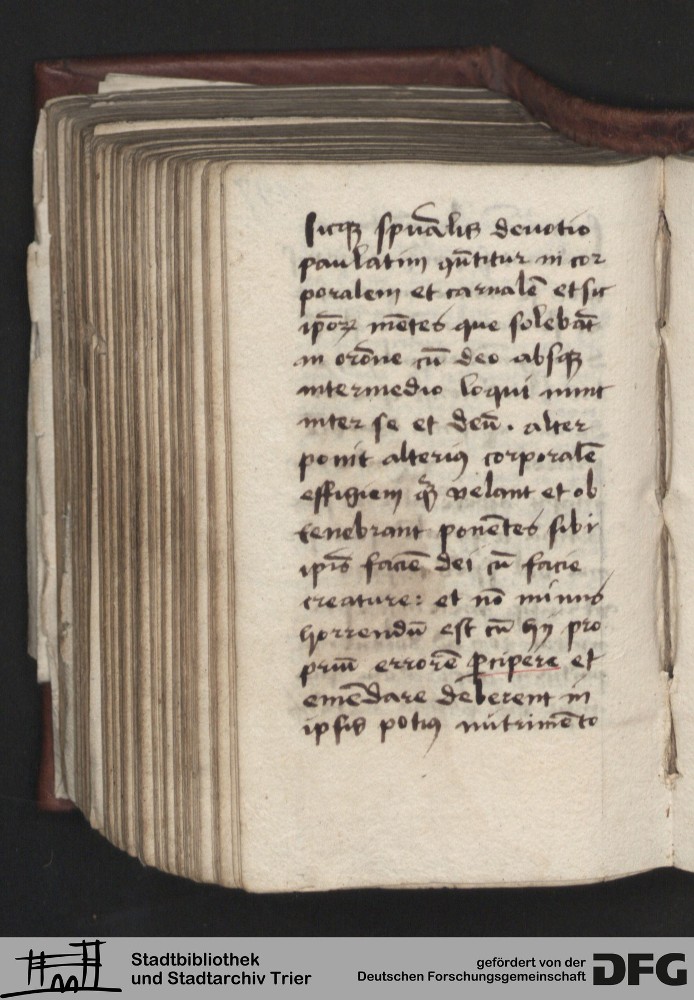 Sicqꝫ spūalis deuotio
paulatim ꝯūtitur in cor
poralem et carnalē et sic
ipōꝝ mētes que solebāt
in orōne cū deo absqꝫ
intermedio loqui nunc
inter se et deū . alter
ponit alteriꝰ corporalē
effigiem velant et ob
tenebrant ponētes sibi
ipīs faciē dei cū facie
creature: et nō minus
horrendū est cū hij pro
priū errorē ꝑcipere et
emēdare deberent in
ipsis potiꝰ nutrimēto
Stadtbibliothek
und Stadtarchiv Trier
gefördert von der
Deutschen Forschungsgemeinschaft
DFG